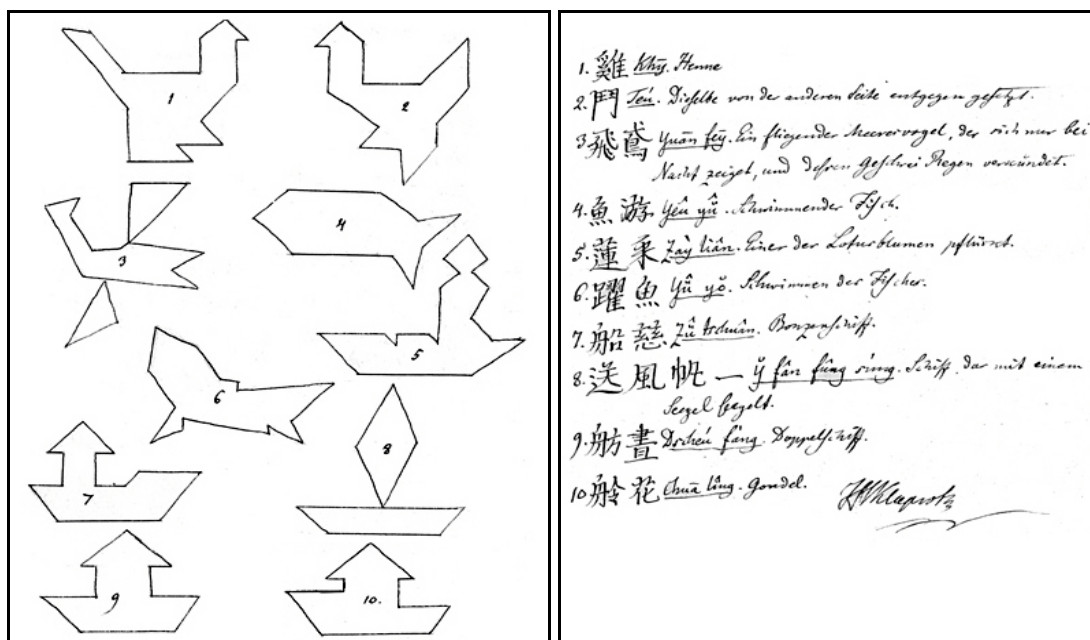 1
2
3
4
5
6
7
8
9
10.
1. 雞 Khy. Henne
2. 鬥 Teú. Dieselbe von der anderen Seite entgegen gesetzt.
3 飛鳶 Yuān feÿ. Ein fliegender Meeresvogel, der sich nur bei
Nacht zeiget, und dessen Geschrei Regen verkündet.
4. 魚游 Yêu yû. Schwimmender Fisch.
5. 蓮采 Zày liân. Einer der Lotusblumen pflückt.
6. 躍魚 Yû yŏ. Schwimmen der Fischer.
7. 船慈 Zû tschuân. Bonzenschiff.
8. 送風帆一 y̆ fân fūng súng. Schiff, das mit einem
Seegel seegelt.
9. 舫畫 Dscheú fàng. Doppelschiff.
10 舲花 Chuā lîng. Gondel.